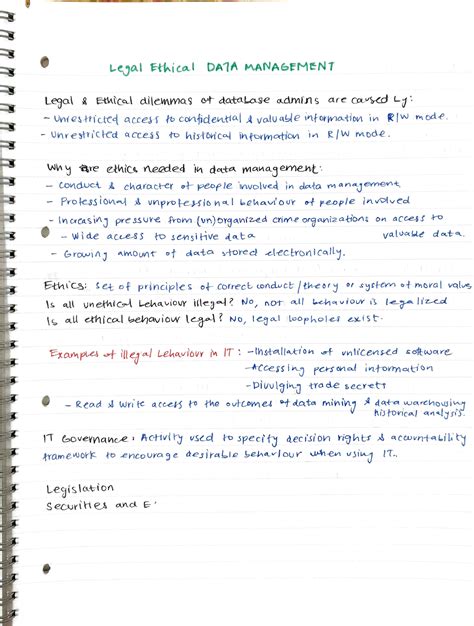 Legal Ethical DATA MANAGEMENT
Legal & Ethical dilemmas of database admins are caused by:
- Unrestricted access to confidential & valuable information in R/W mode.
- Unrestricted access to historical information in R/W mode.
Why are ethics needed in data management:
- Conduct & character of people involved in data management
- Professional & unprofessional behaviour of people involved
- Increasing pressure from (un)organized crime organizations on access to
valuable data.
- Wide access to sensitive data
- Growing amount of data stored electronically.
Ethics: Set of principles of correct conduct/theory or system of moral values
Is all unethical behaviour illegal? No, not all behaviour is legalized
Is all ethical behaviour legal? No, legal loopholes exist.
Examples of illegal behaviour in IT: - Installation of unlicensed software
- Accessing personal information
- Divulging trade secrets
- Read & Write access to the outcomes of data mining & data warehousing
historical analysis.
IT Governance: Activity used to specify decision rights & accountability
framework to encourage desirable behaviour when using IT..
Legislation
Securities and E